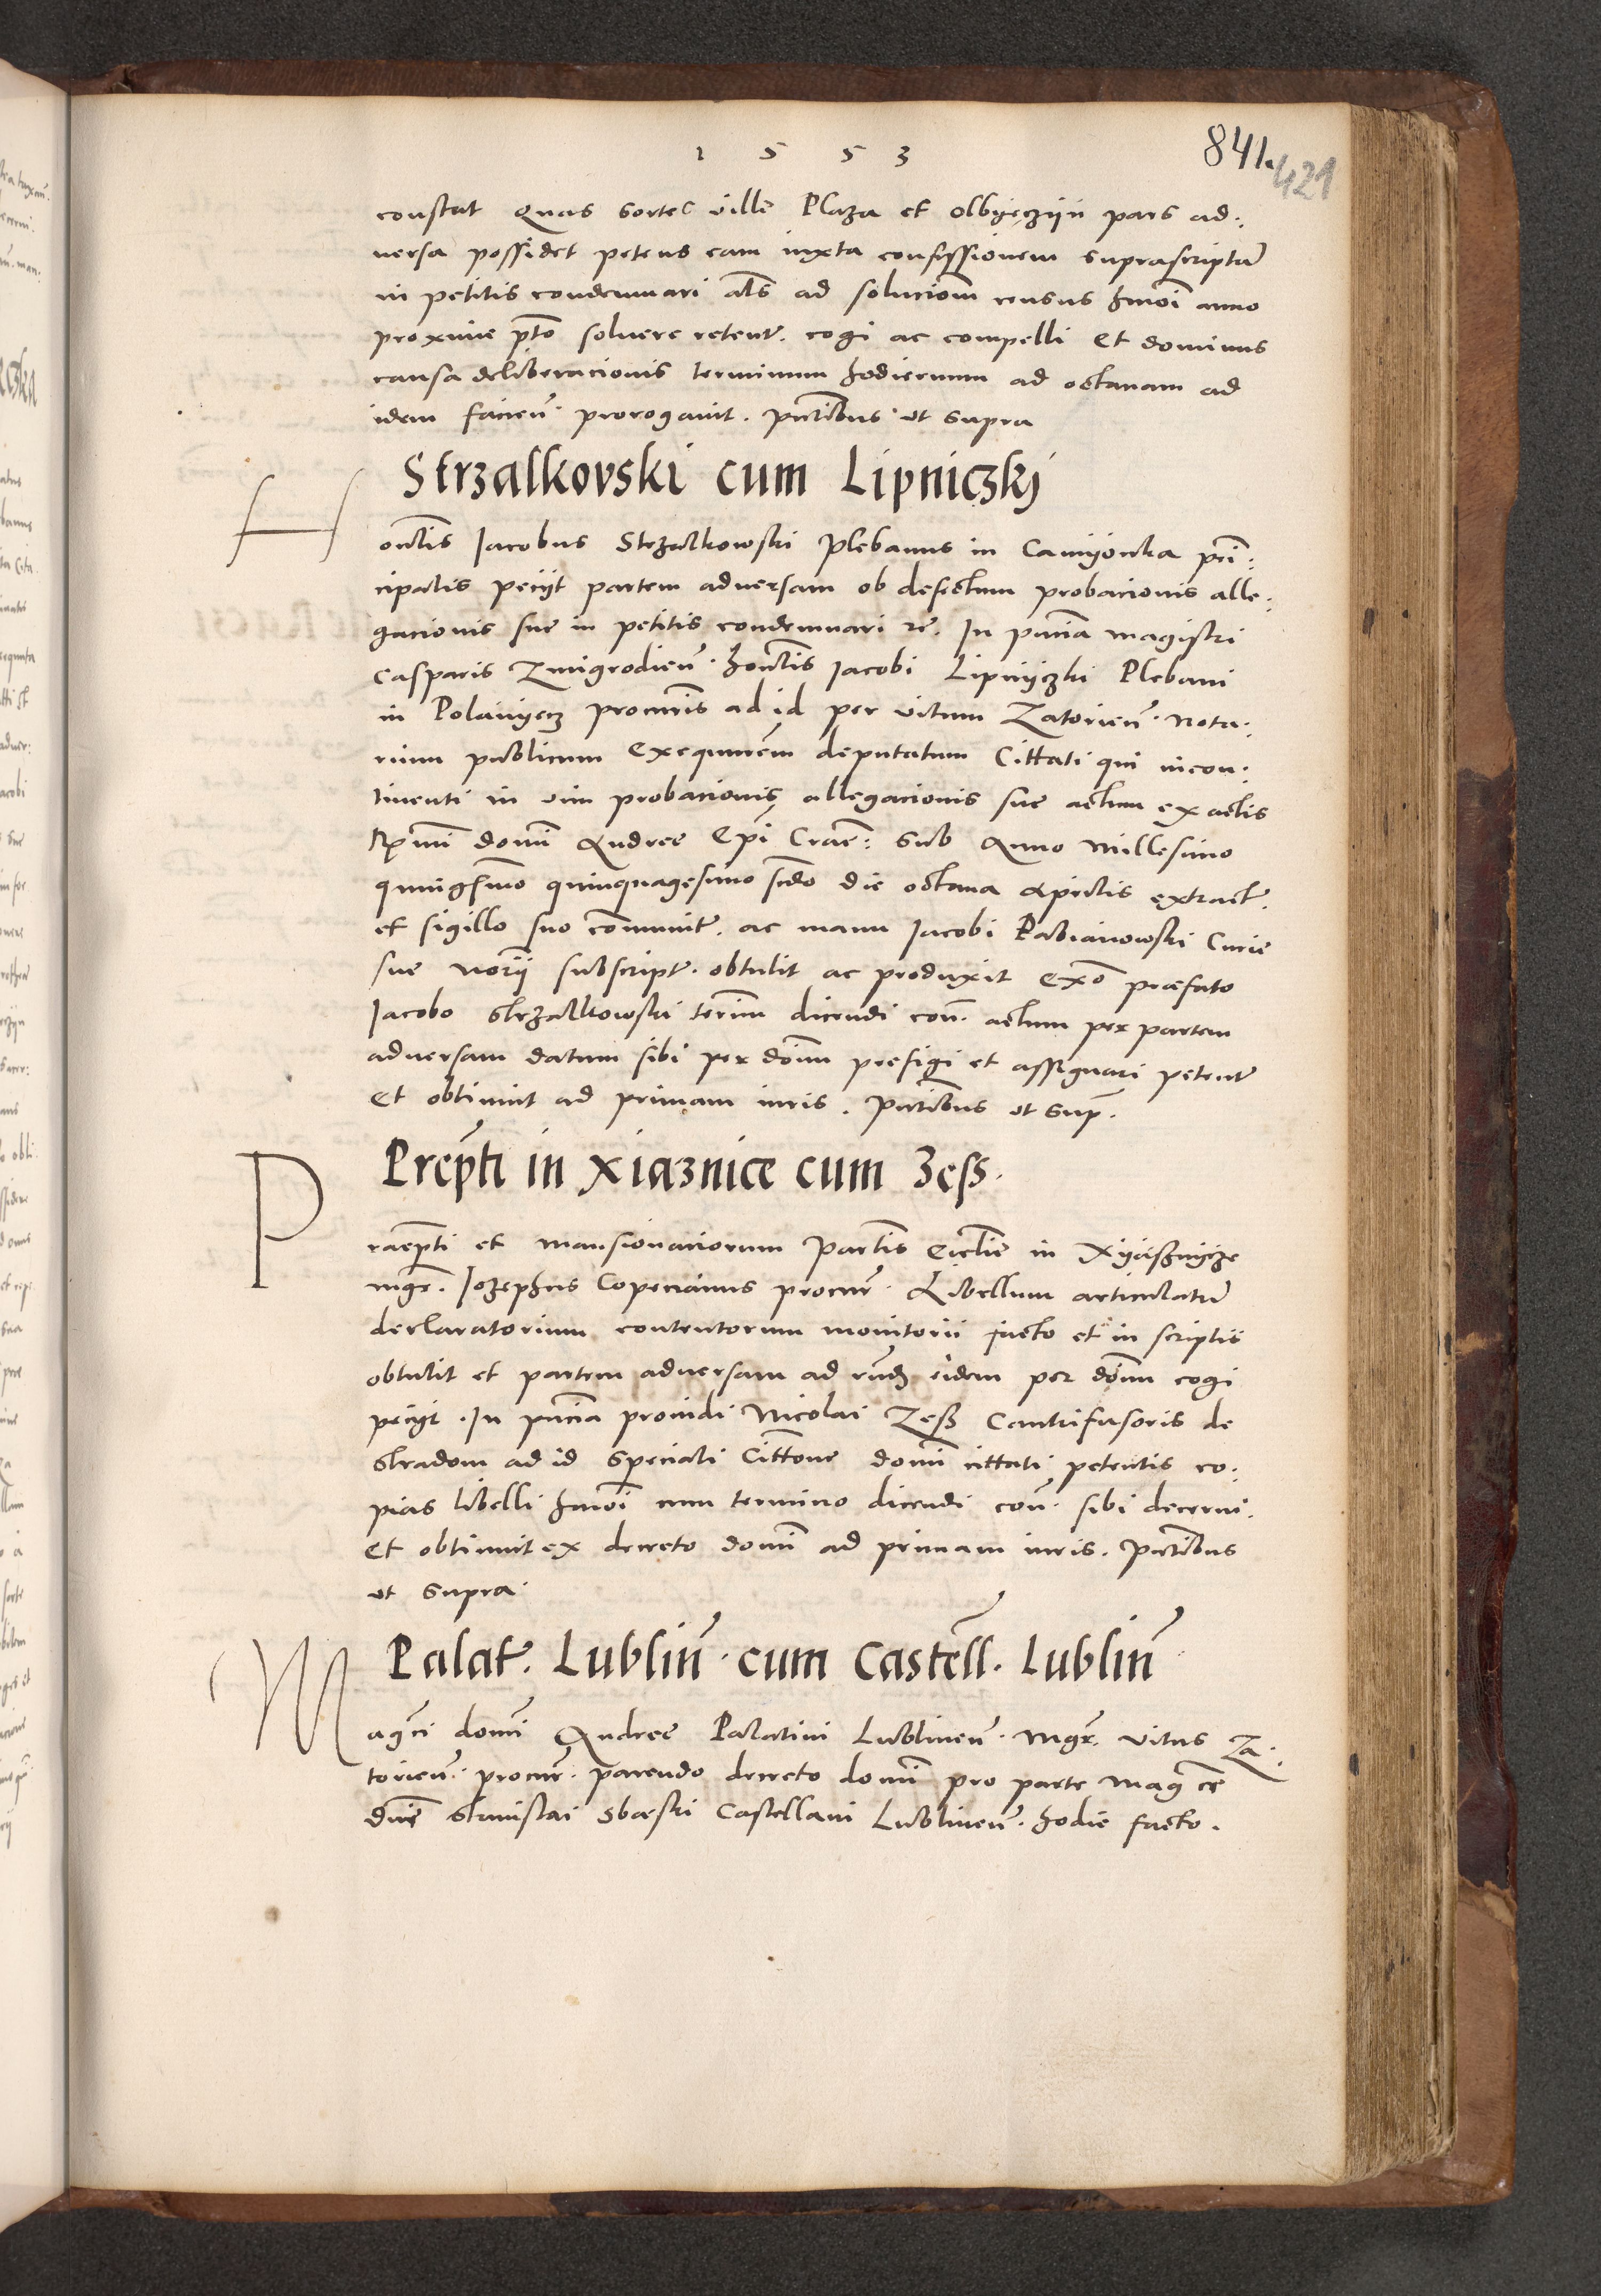 1 5 5 3
841.
421
constat quas sortes ville Plaza et Olbyęczijn pars ad:
versa possidet petens eam iuxta confessionem suprascriptam
in petitis condemnari als ad solucionem census hmoi anno
proxime pto solvere retent. cogi ac compelli Et dominus
causa deliberacionis terminum hodiernum ad octavam ad
idem facien. prorogavit. pntibus ut supra
Strzalkovski cum Lipniczki
H
onlis Jacobus Strzalkowski Plebanus in Camijonka prin:
cipalis peciit partem adversam ob defectum probacionis alle:
gacionis sue in petitis condemnari rc. In pncia magistri
Casparis Zmigrodien. honlis Jacobi Lipnyczki Plebani
in Polanijecz procuris ad id per vitum Zatorien. nota:
rium publicum Exequutem deputatum Cittati qui incon:
tinenti in vim probacionis allegacionis sue actum ex actis
Rmi domi Andree Epi Cracn: sub Anno Millesimo
quingmo quinquagesimo scdo die octava Aprilis extract.
et sigillo suo communit. ac manu Jacobi Pabianowski Curie
sue norii subscript. obtulit ac produxit Exo praefato
Jacobo Strzalkowski termn dicendi con. actum per partem
adversam datum sibi per domn prefigi et assignari petent
Et obtinuit ad primam iuris. pntibus ut sup.
Prepti in Xiaznice cum Zess.
P
raepti et mansionariorum partis Ecclie in Xyąsznycze
mgr. Jozephus Copecianus procur. Libellum articulatum
declaratorium contentorum monitorii facto et in scriptis
obtulit et partem adversam ad rndz eidem per domn cogi
peciit. In pncia providi Nicolai Zess Cantrifusoris de
Stradom ad id speciali Cittone domi cittati petentis co:
pias libelli hmoi cum termino dicendi con. sibi decerni.
Et obtinuit ex decreto domi ad primam iuris. pntibus
ut supra.
Palat. Lublin. cum Castell. Lublin
M
agci domi Andree Palatini Lublinen. mgr. vitus Za:
torien. procur. parendo decreto domi pro parte Mag ce
dnie Stanislai Sbąski Castellani Lublinen. hodie facto.